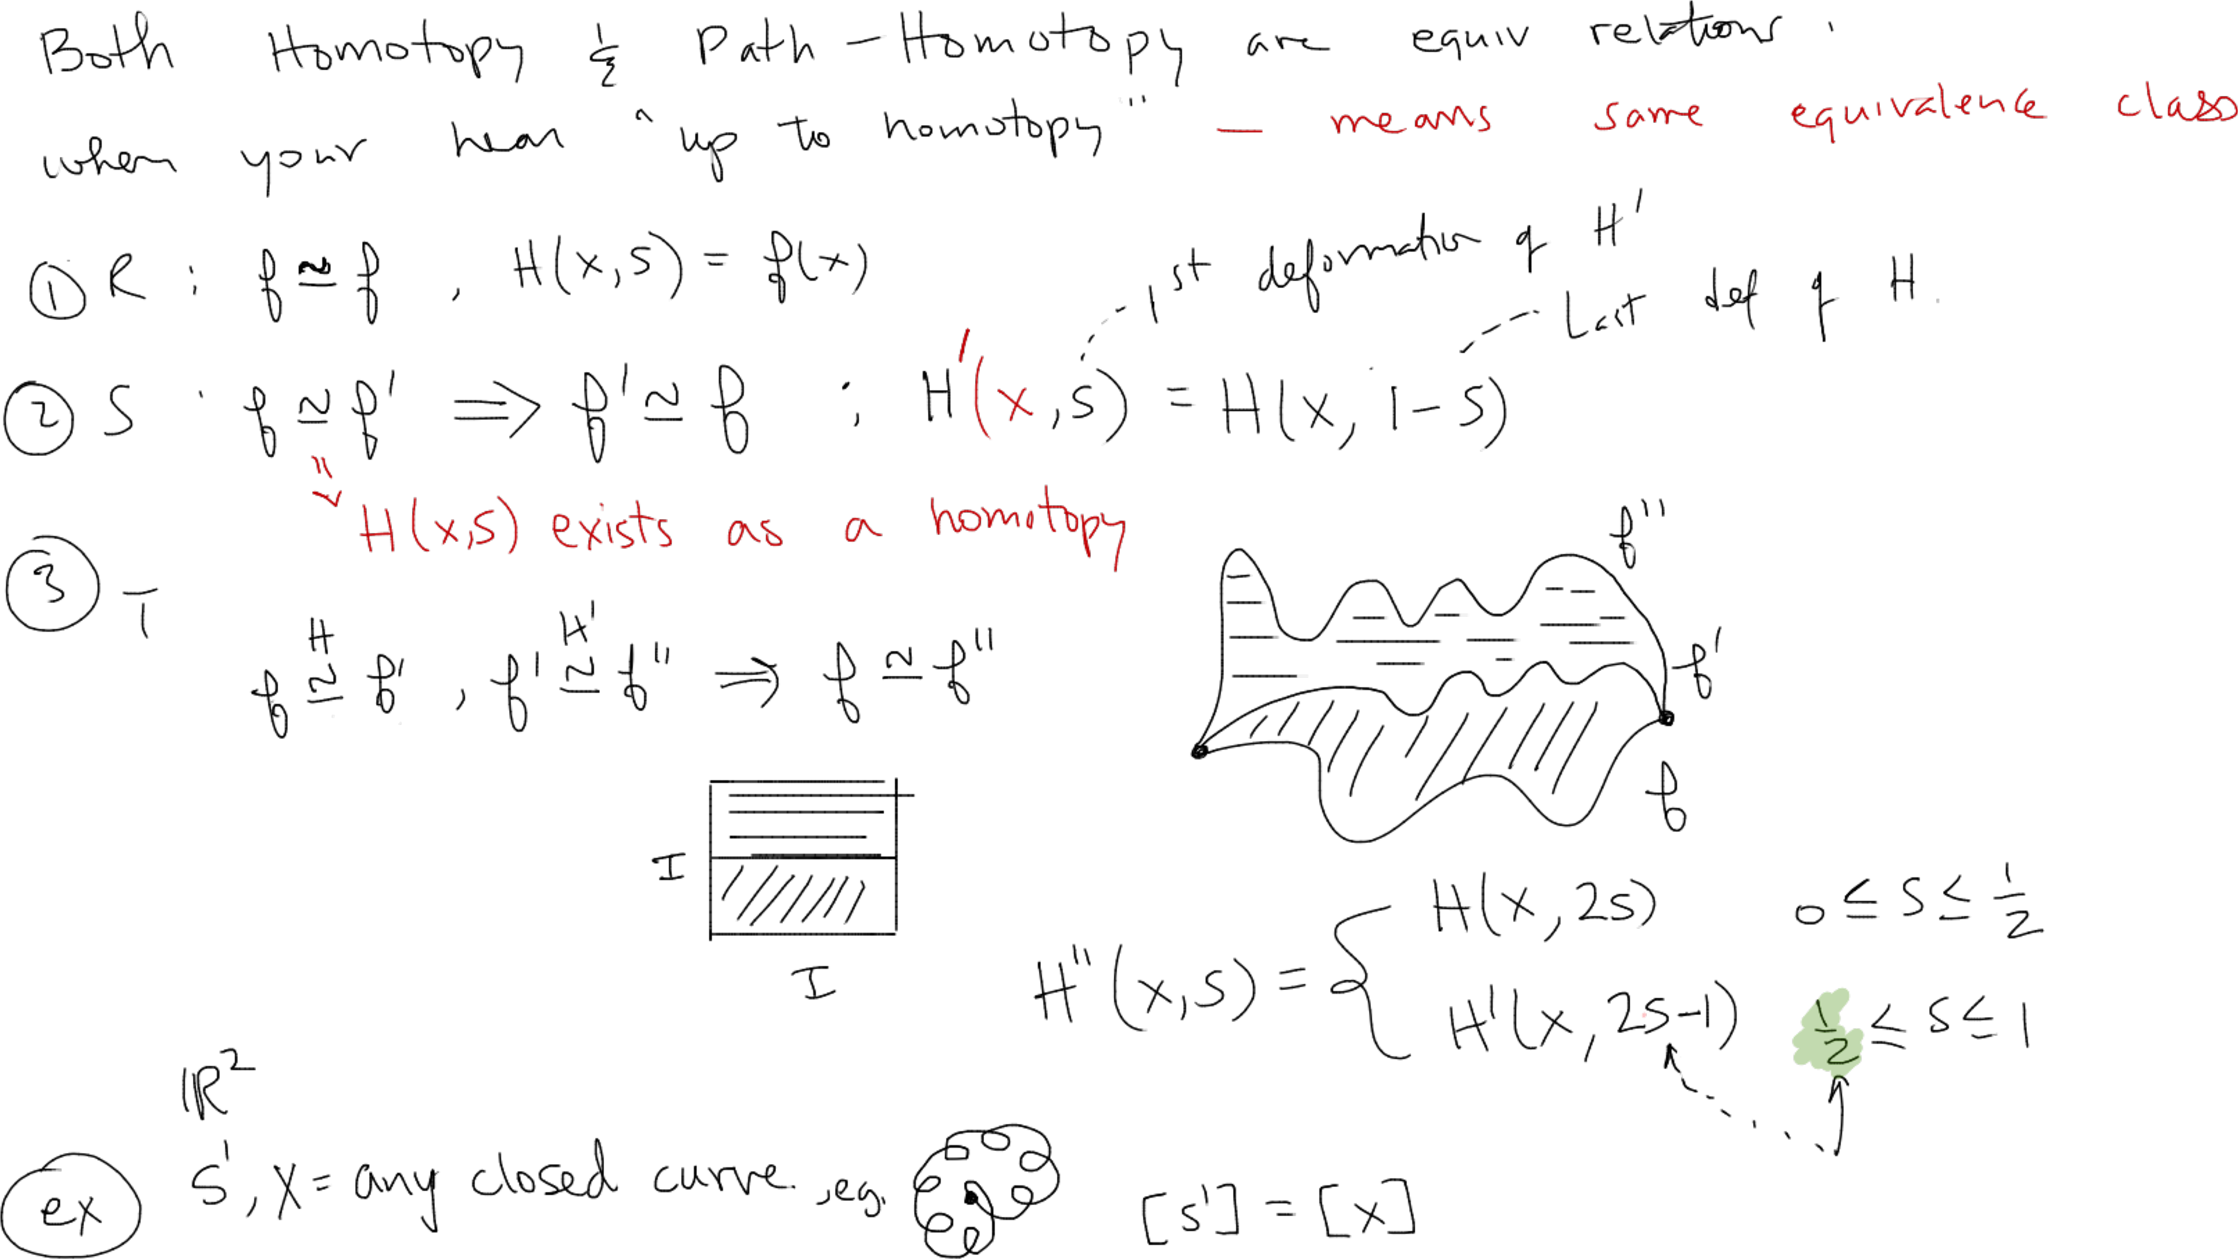 Both Homotopy & Path-Homotopy are equiv relations.
when your hear "up to homotopy" — means same equivalence class
① R : f ≃ f , H(x,s) = f(x)
1st deformation of H'
Last def of H.
② S : f ≃ f' ⟹ f' ≃ f ; H'(x,s) = H(x, 1-s)
H(x,s) exists as a homotopy
③ T
H H'
f ≃ f' , f' ≃ f'' ⟹ f ≃ f''
f''
f'
f
I
I
H''(x,s) = { H(x, 2s) 0 ≤ s ≤ 1/2
H'(x, 2s-1) 1/2 ≤ s ≤ 1
ℝ²
ex S¹, X = any closed curve. , eg. [S¹] = [X]